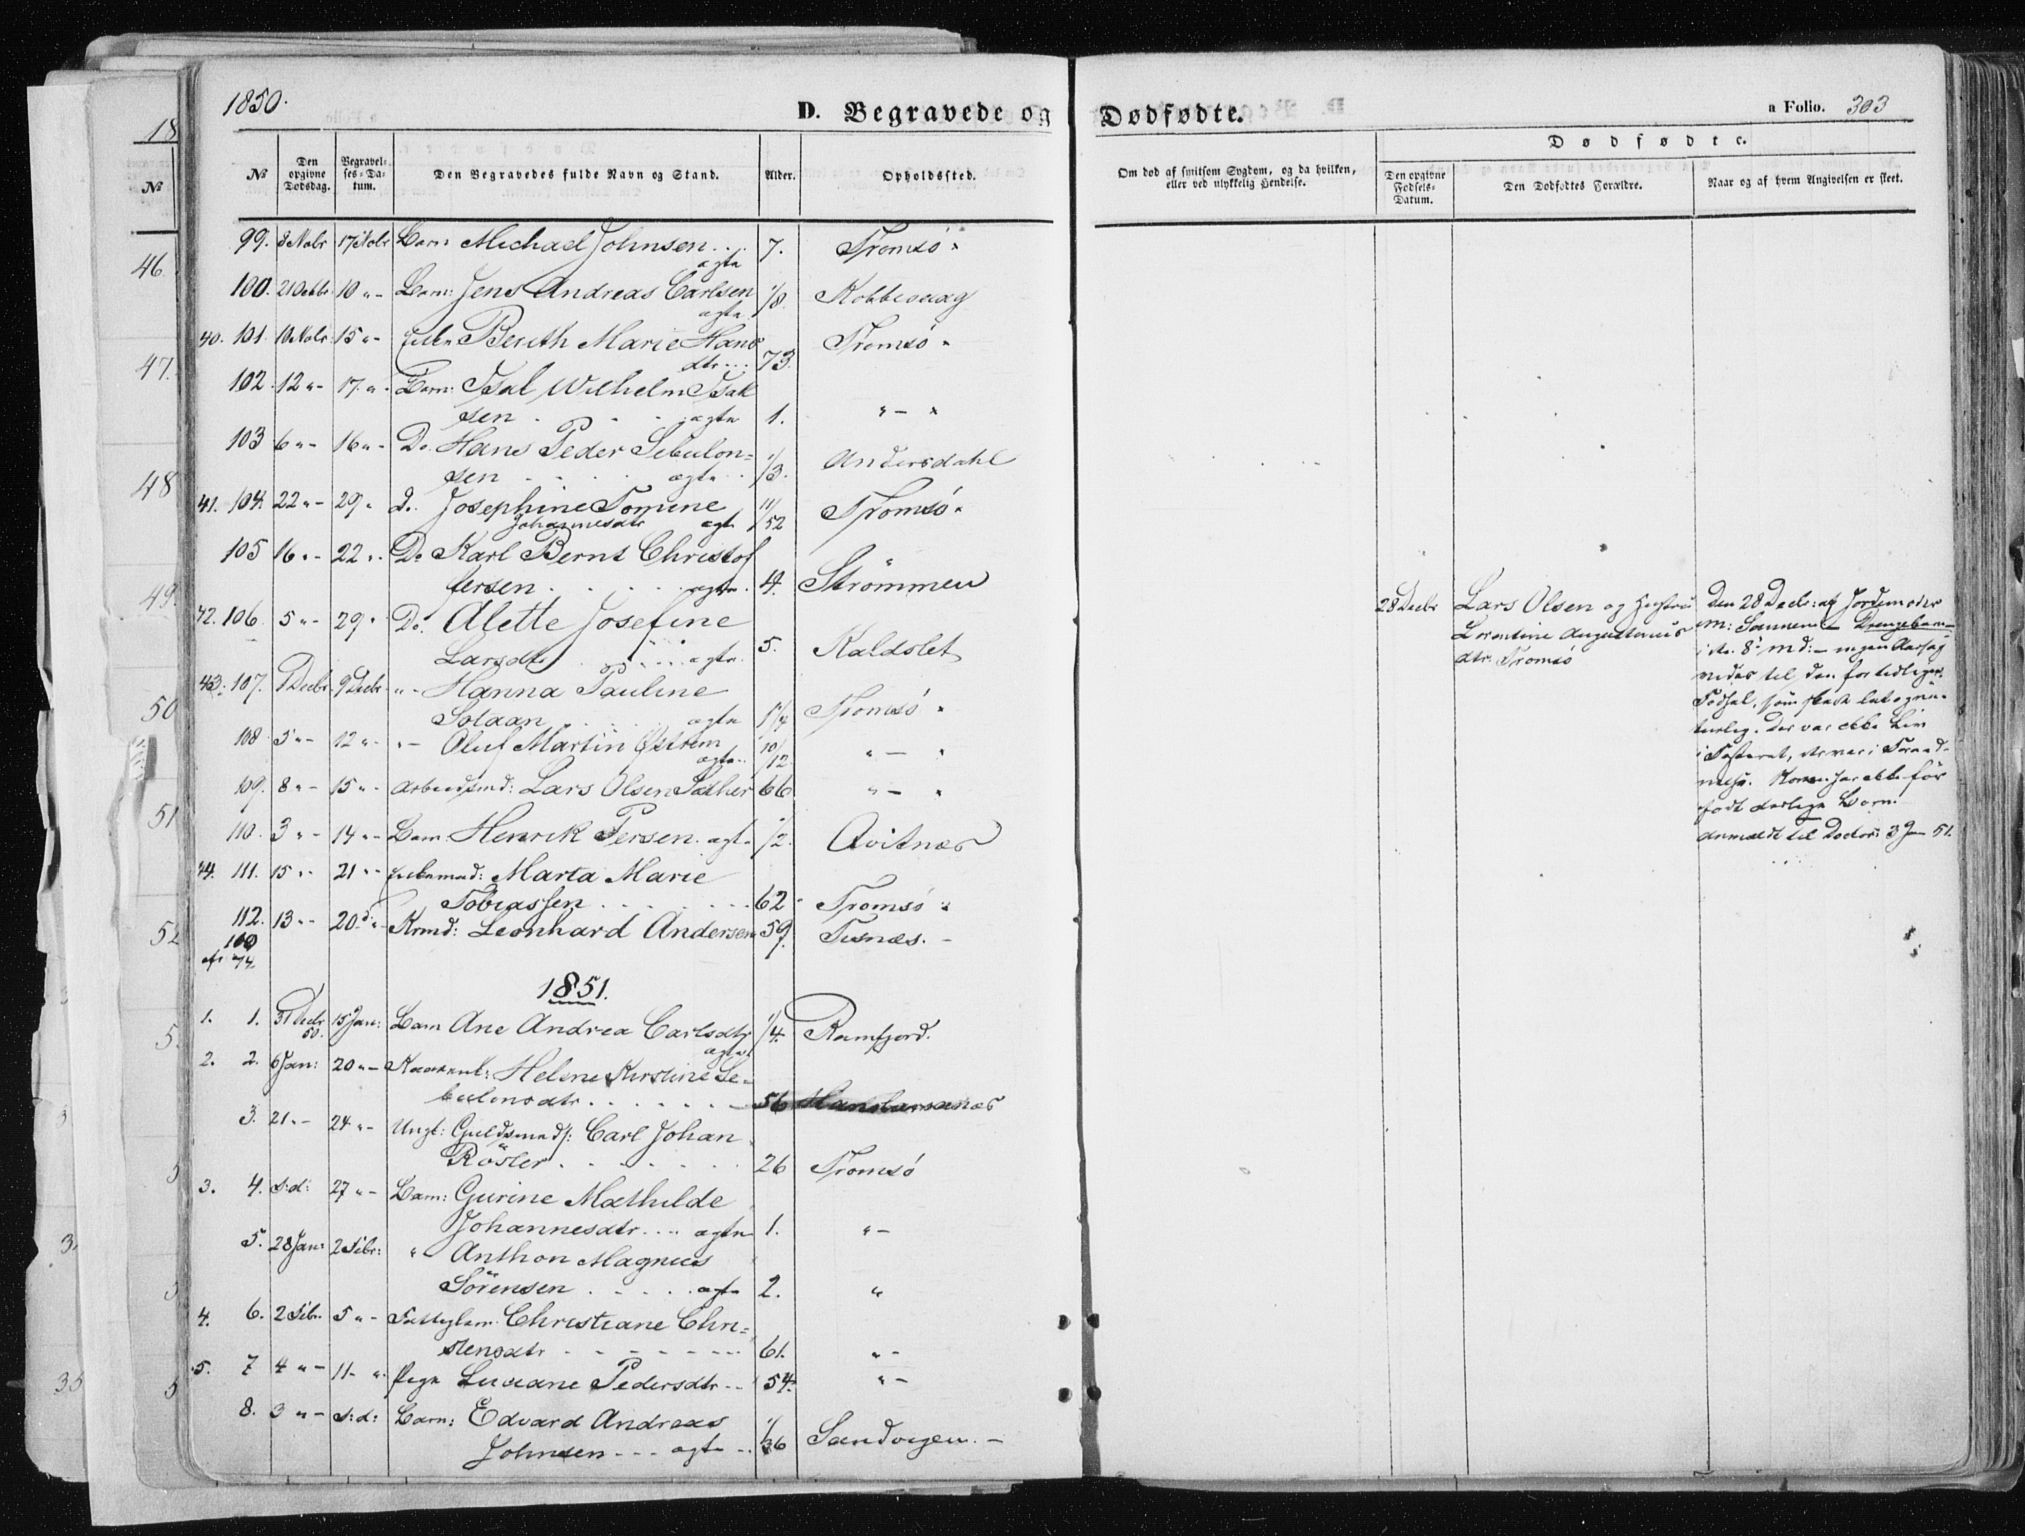 1850.
D. Begravede og Dødfødte.
a Folio. 303
Dødfødte.
№
Den opgivne Dødsdag.
Begravelses-Datum.
Den Begravedes fulde Navn og Stand.
Alder.
Opholdssted.
Om død af smitsom Sygdom, og da hvilken, eller ved ulykkelig Hendelse.
Den opgivne Fødsels-Datum.
Den Dødfødtes Forældre.
Naar og af hvem Angivelsen er skeet.
99. 8 Nobr 17 Nobr Barn Michael Johnsen ... 7. Tromsø "
ægte
100. 21 Octbr 10 " - Barn: Jens Andreas Carlsen 1/8 Kobbevaag
ægte
40. 101. 10 Nobr 15 " - Berith Marie Hans Tromsø "
dtr ... 73.
102. 12 " - 17. " - Barn: Isak Wilhelm Isak
sen . . . ægte 1. " - "
103 6 " - 16 " - Do. Hans Peder Sebulon=
sen . . . ægte . . 1/3. Andersdahl
41. 104. 22 " - 29 " D. Josephine Tomine 11/52 Tromsø "
Johannesdtr ægte
105 16 " - 22 " - Do Karl Bernt Christof
fersen . . . . ægte . 4. Strømmen
42. 106. 5 " - 29 " Do. Alette Josefine
Larsdtr . . . . ægte 5. Kaldslet
43. 107. 1 Decbr 9 Decbr " - Hanna Pauline
Sotaan . . . . ægte 1 1/4 Tromsø "
108 5 " - 12 " - " - Oluf Martin Østrem 10/12 " - "
ægte ..
109. 8 " - 15 " - Arbeidsmd: Lars Olsen Sæther 66 " - "
110. 3 " - 14 " - Barn: Henrik Persen ægte 1/2. Qvitnes
44. 111. 15 " - 21 " - Marta Marie
Tobiassen . . . . . . . 62 Tromsø "
112. 13 " - 20 d " - Krmd: Leonhard Andersen 59. Tisnæs. -
100
74.
1851.
1. 1. 31 Decbr 50. 15 Jan: Barn Ane Andrea Carlsdtr 1/4. Ramfjord.
ægte
2. 2. 6 Jan: 20 " - Helene Kirstine Se=
bulonsdtr . . . . . . . - 56 Hanslarsanæs
3. 21 " - 24 " - Ungk: Guldsmeds: Carl Johan
Rösler . . . . . . . 26 Tromsø
3. 4. s:d: 27 " - Barn: Gurine Mathilde
Johannesdtr .... ægte 1. " -
5. 28 Jan: 2 Febr: " Anthon Magnus
Sörensen . . . . . ægte 2. "
4. 6. 2 Febr. 5 " - Fattiglem Christiane Chri=
stensdtr - - - - - - - - 61. " -
5. 7 4 " - 11 - " Pige Luciane Pedersdtr - - 54. " -
8. 3 " - s:d: Barn: Edvard Andreas
Johnsen - - - ægte - . 1/36 Sandvigen. -
28 Decbr
Lars Olsen og Hustru
Lorentine Augustinus
dtr. Tromsø
Den 28 Decbr: af Jordemoder
m: Sannem - Drengebarn
i de. 8de md: - ingen Aarsag
vides til den fortidlige
Fødsel, som skede let og na-
turlig. Der var ikke Liv
i Fosteret, det var i Foraad-
nelse. Konen har ikke før
født dødfødte Børn.
Anmeldt til Doctor: 3 Jan 51.
18
№
46.
47.
48
49.
50
51
52
5.
5
35